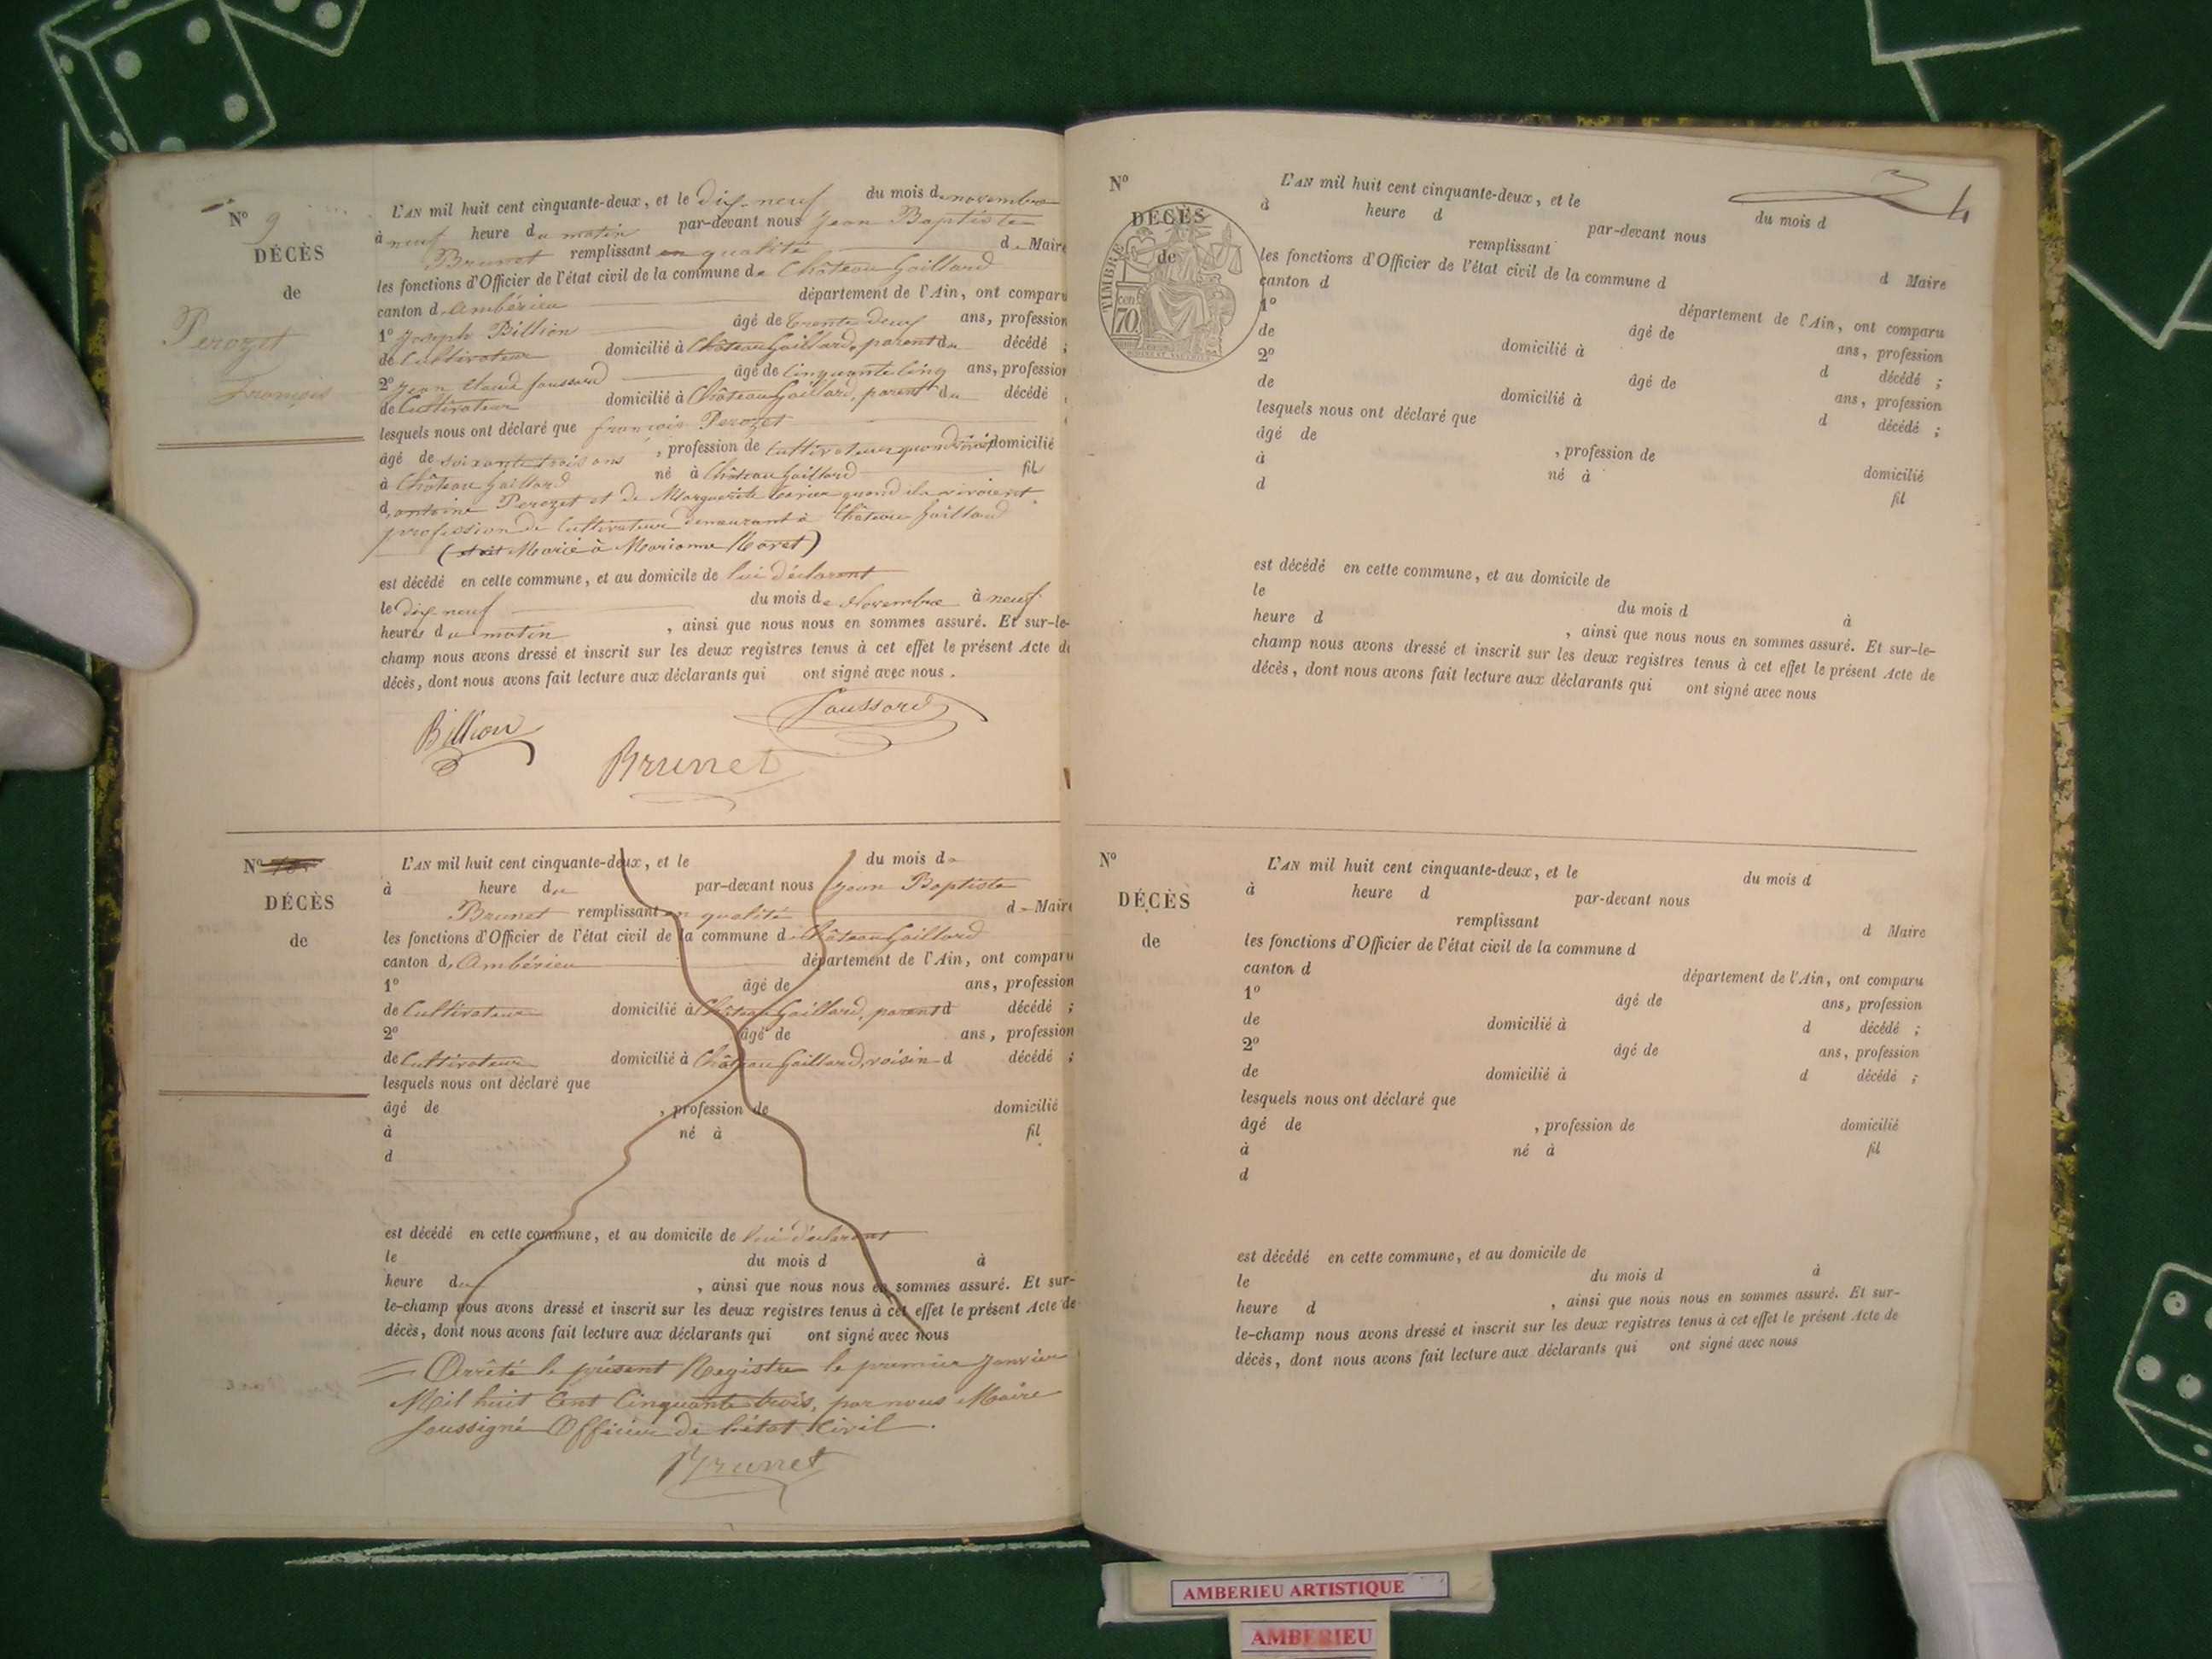 N° 9
DÉCÈS
de
Perozet
François
L'AN mil huit cent cinquante-deux, et le dix-neuf du mois de novembre
à neuf heure du matin par-devant nous Jean Baptiste
Brunet remplissant en qualité de Maire
les fonctions d'Officier de l'état civil de la commune de Château Gaillard
canton d'Ambérieu département de l'Ain, ont comparu
1° Joseph Billion âgé de trente deux ans, profession
de Cultivateur domicilié à Château Gaillard, parent du décédé ;
2° Jean Claude Joussard âgé de Cinquante Cinq ans, profession
de Cultivateur domicilié à Château Gaillard, parent du décédé ;
lesquels nous ont déclaré que françois Perozet
âgé de soixante trois ans , profession de Cultivateur quand domicilié
à Château Gaillard né à Château Gaillard fil
d'antoine Perozet et de Marguerite quand ils vivoient
profession de Cultivateur demeurant à Château Gaillard
( Marié à Marianne )
est décédé en cette commune, et au domicile de lui déclarant
le dix neuf du mois de Novembre à neuf
heures du matin , ainsi que nous nous en sommes assuré. Et sur-le-
champ nous avons dressé et inscrit sur les deux registres tenus à cet effet le présent Acte de
décès, dont nous avons fait lecture aux déclarants qui ont signé avec nous .
Billion Joussard
Brunet
N° 10
DÉCÈS
de
L'AN mil huit cent cinquante-deux, et le du mois de
à heure du par-devant nous Jean Baptiste
Brunet remplissant en qualité de Maire
les fonctions d'Officier de l'état civil de la commune de Château Gaillard
canton d'Ambérieu département de l'Ain, ont comparu
1° âgé de ans, profession
de Cultivateur domicilié à Château Gaillard, parent d décédé ;
2° âgé de ans, profession
de Cultivateur domicilié à Château Gaillard, voisin d décédé ;
lesquels nous ont déclaré que
âgé de , profession de domicilié
à né à fil
d
est décédé en cette commune, et au domicile de lui déclarant
le du mois d à
heure du , ainsi que nous nous en sommes assuré. Et sur-
le-champ nous avons dressé et inscrit sur les deux registres tenus à cet effet le présent Acte de
décès, dont nous avons fait lecture aux déclarants qui ont signé avec nous
Arrêté le présent Registre le premier Janvier
Mil huit Cent Cinquante trois, par nous Maire
soussigné Officier de l'état Civil.
Brunet
4
N°
DÉCÈS
de
TIMBRE
70
L'AN mil huit cent cinquante-deux, et le du mois d
à heure d par-devant nous
remplissant d Maire
les fonctions d'Officier de l'état civil de la commune d
canton d département de l'Ain, ont comparu
1° âgé de ans, profession
de domicilié à d décédé ;
2° âgé de ans, profession
de domicilié à d décédé ;
lesquels nous ont déclaré que
âgé de , profession de domicilié
à né à fil
d
est décédé en cette commune, et au domicile de
le du mois d à
heure d , ainsi que nous nous en sommes assuré. Et sur-le-
champ nous avons dressé et inscrit sur les deux registres tenus à cet effet le présent Acte de
décès, dont nous avons fait lecture aux déclarants qui ont signé avec nous
N°
DÉCÈS
de
L'AN mil huit cent cinquante-deux, et le du mois d
à heure d par-devant nous
remplissant d Maire
les fonctions d'Officier de l'état civil de la commune d
canton d département de l'Ain, ont comparu
1° âgé de ans, profession
de domicilié à d décédé ;
2° âgé de ans, profession
de domicilié à d décédé ;
lesquels nous ont déclaré que
âgé de , profession de domicilié
à né à fil
d
est décédé en cette commune, et au domicile de
le du mois d à
heure d , ainsi que nous nous en sommes assuré. Et sur-
le-champ nous avons dressé et inscrit sur les deux registres tenus à cet effet le présent Acte de
décès, dont nous avons fait lecture aux déclarants qui ont signé avec nous
AMBERIEU ARTISTIQUE
AMBERIEU